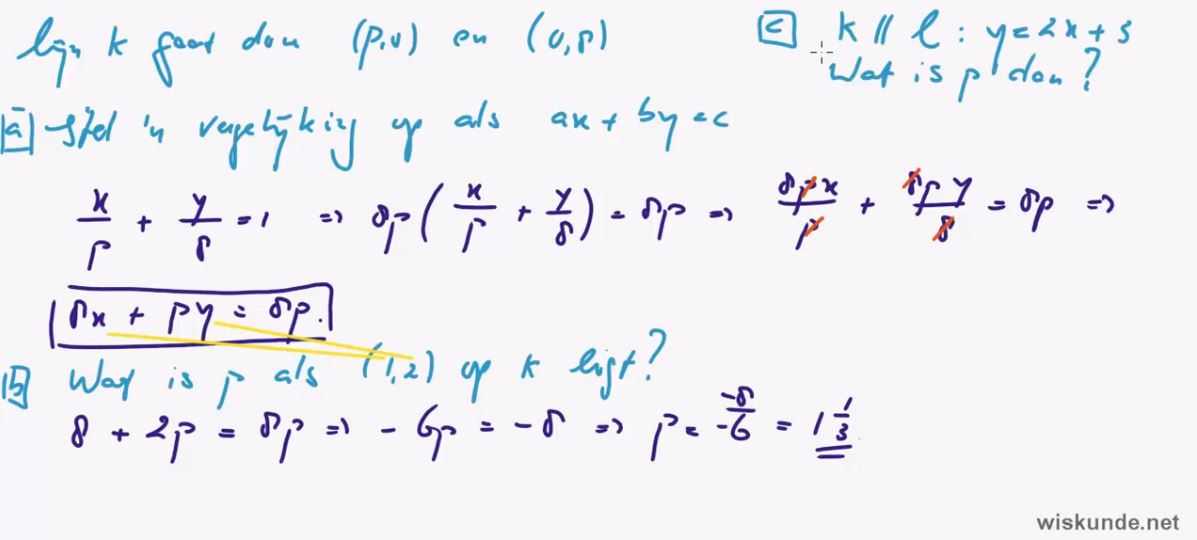 lijn k gaat door (p,0) en (0,8)
[c] k // l : y = 2x + 3
Wat is p dan?
[a] Stel 'n vergelijking op als ax + by = c
x/p + y/8 = 1 => 8p(x/p + y/8) = 8p => 8px/p + 8py/8 = 8p =>
8x + py = 8p.
[b] Wat is p als (1,2) op k ligt?
8 + 2p = 8p => -6p = -8 => p = -8/-6 = 1 1/3
wiskunde.net